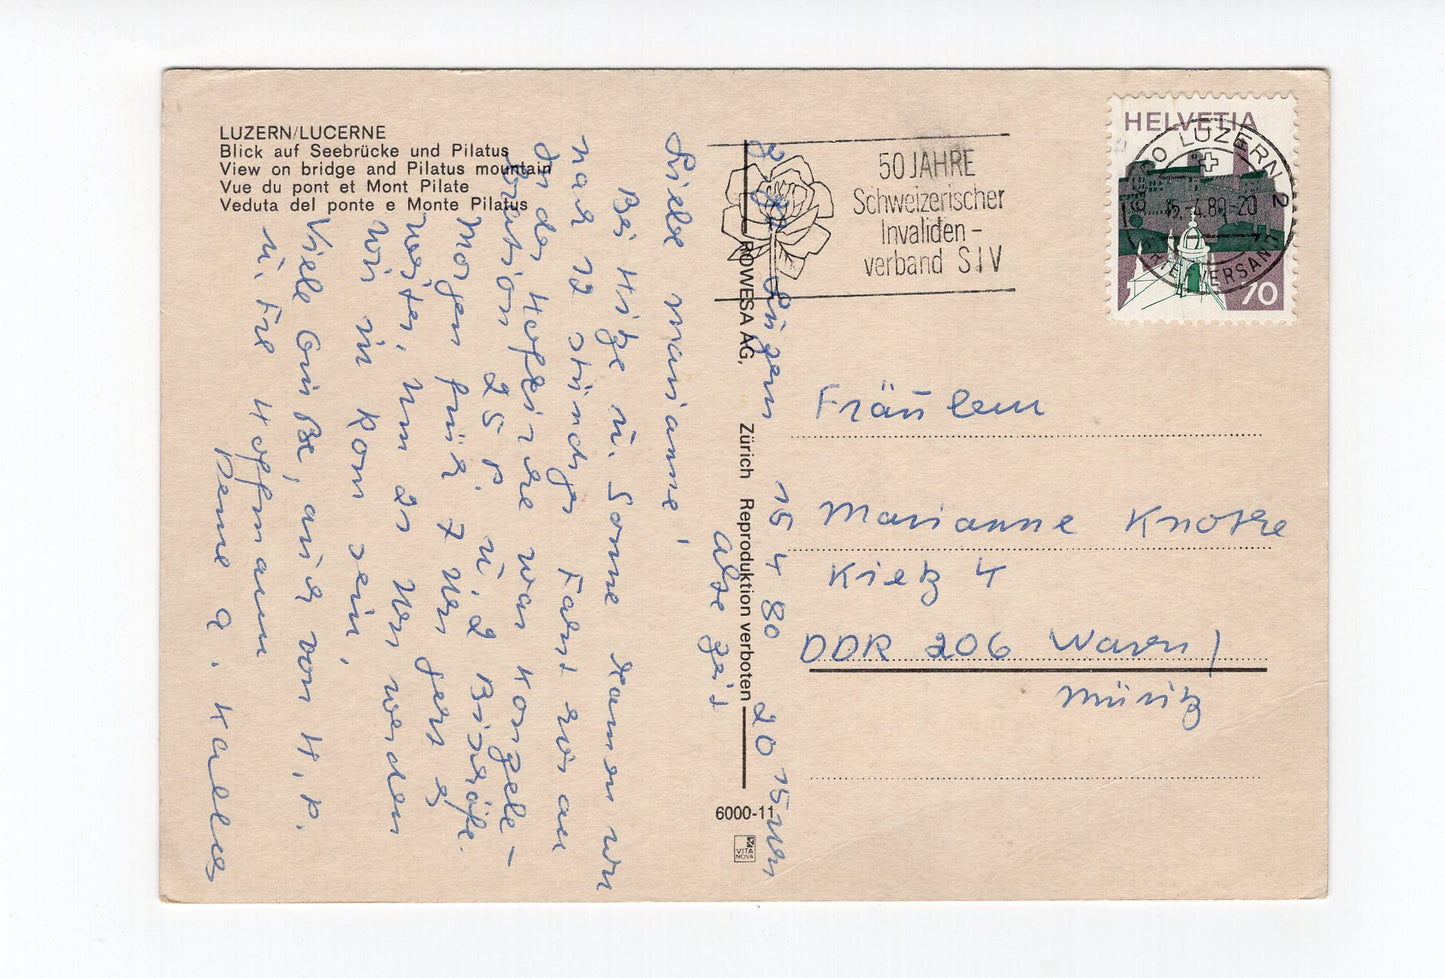 LUZERN/LUCERNE
Blick auf Seebrücke und Pilatus
View on bridge and Pilatus mountain
Vue du pont et Mont Pilate
Veduta del ponte e Monte Pilatus
Luzern 15 4 80 20 15 Uhr
alte Zeit
Liebe Marianne!
Bei Hitze u. Sonne kamen wir
nach 12 stündiger Fahrt wir an
In der Hofkirche war Konzele-
bration 25 P. u. 2 Bischöfe.
Morgen früh 7 Uhr geht es
weiter, um 21 Uhr werden
wir in Rom sein,
Viele Grüße, auch von H. P.
u. Frl Hoffmann
ROWESA AG, Zürich Reproduktion verboten
6000-11
VITA NOVA
50 JAHRE
Schweizerischer
Invaliden-
verband SIV
HELVETIA
70
LUZERN 2
15.-4.80-20
Fräulein
Marianne Knothe
Kietz 4
DDR 206 Waren/
Müritz